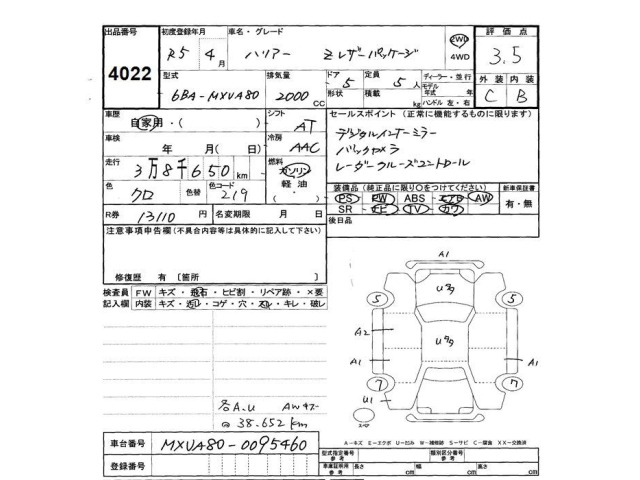 出品番号 4022
初度登録年月 R5年 4月
車名・グレード ハリアー Zレザーパッケージ
2WD 4WD
評価点 3.5
外装 C 内装 B
型式 6BA-MXUA80
排気量 2000 CC
ドア 5 形状
定員 5人
積載 kg
ディーラー・並行
モデル年式 年
ハンドル 左・右
車歴 自家用・( )
シフト AT
車検 年 月(日)
冷房 AAC
走行 3万8千650km
燃料 ガソリン 軽油・( )
色 クロ 色替 色コード 219
R券 13110円
名変期限 月 日
セールスポイント(正常に機能するものに限ります)
デジタルインナーミラー
バックカメラ
レーダークルーズコントロール
装備品(純正品に限り〇をつけてください)
PS PW ABS エアB AW
SR ナビ TV カワ
新車保証書 有・無
後日品
注意事項申告欄(不具合内容等は具体的に記入して下さい)
修復歴 有〔箇所 〕
検査員記入欄
FW キズ・飛石・ヒビ割・リペア跡・×要
内装 キズ・汚れ・コゲ・穴・スレ・キレ・破レ
各A.U AWキズ
@38.652km
A1
U3
5 5
A2
U73
A1 A1
7 7
U1
スペア
A-キズ E-エクボ U-凹み W-補修跡 S-サビ C-腐食 XX-交換済
車台番号 MXUA80-0095460
登録番号
型式指定番号 参考
類別区分番号 参考
車庫証明用 参考 長さ cm 幅 cm 高さ cm